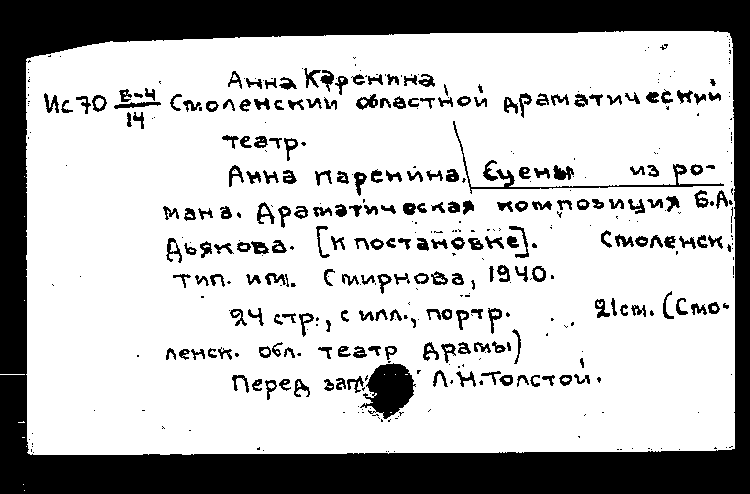 Анна Каренина
Ис70 В-4/14 Смоленский областной драматический
театр.
Анна Каренина. Сцены из ро-
мана. Драматическая композиция Б.А.
Дьякова. [К постановке]. Смоленск,
тип. им. Смирнова, 1940.
24 стр., с илл., портр. 21см. (Смо-
ленск. обл. театр драмы)
Перед загл Л.Н.Толстой.